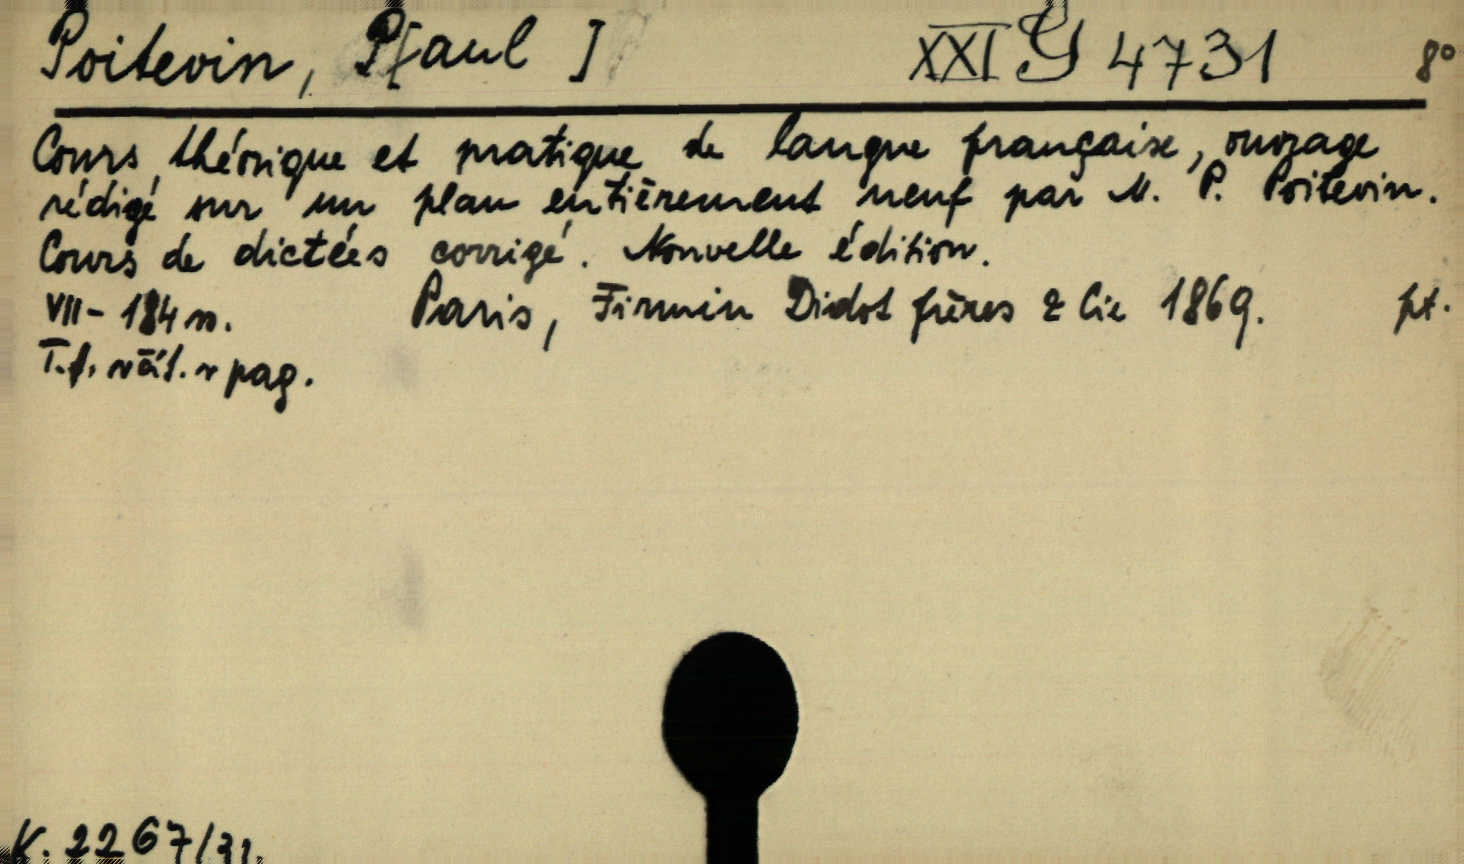 Poitevin, P[aul ] XXI G 4731 8°
Cours théorique et pratique de langue française, ouvrage
rédigé sur un plan entièrement neuf par M. P. Poitevin.
Cours de dictées corrigé. Nouvelle édition.
VII-184 s. Paris, Firmin Didot frères & Cie 1869. pt.
pag.
K. 2267/31.